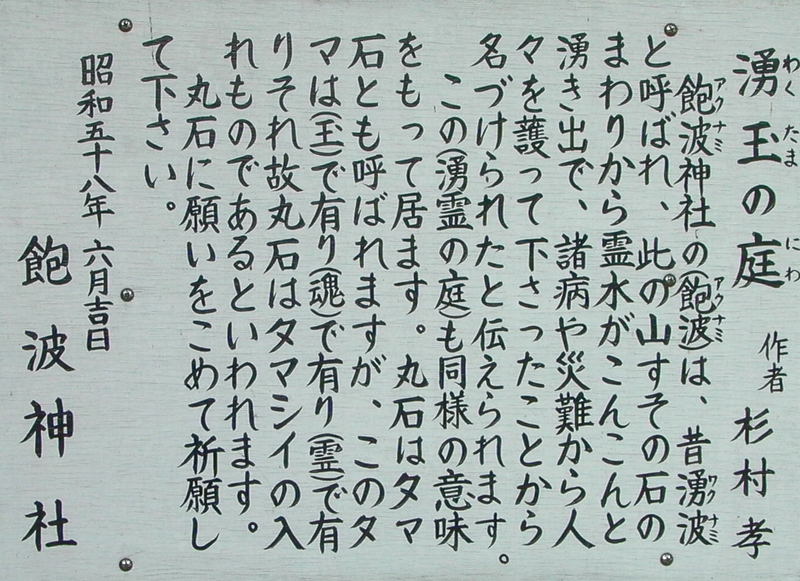 湧玉の庭 作者 杉村孝
わく たま にわ
飽波神社の(飽波)は、昔湧波
アクナミ アクナミ ワクナミ
と呼ばれ、此の山すその石の
まわりから霊水がこんこんと
湧き出で、諸病や災難から人
々を護って下さったことから
名づけられたと伝えられます。
この(湧霊の庭)も同様の意味
をもって居ます。丸石はタマ
石とも呼ばれますが、このタ
マは(玉)で有り(魂)で有り(霊)で有
りそれ故丸石はタマシイの入
れものであるといわれます。
丸石に願いをこめて祈願し
て下さい。
昭和五十八年 六月吉日
飽波神社